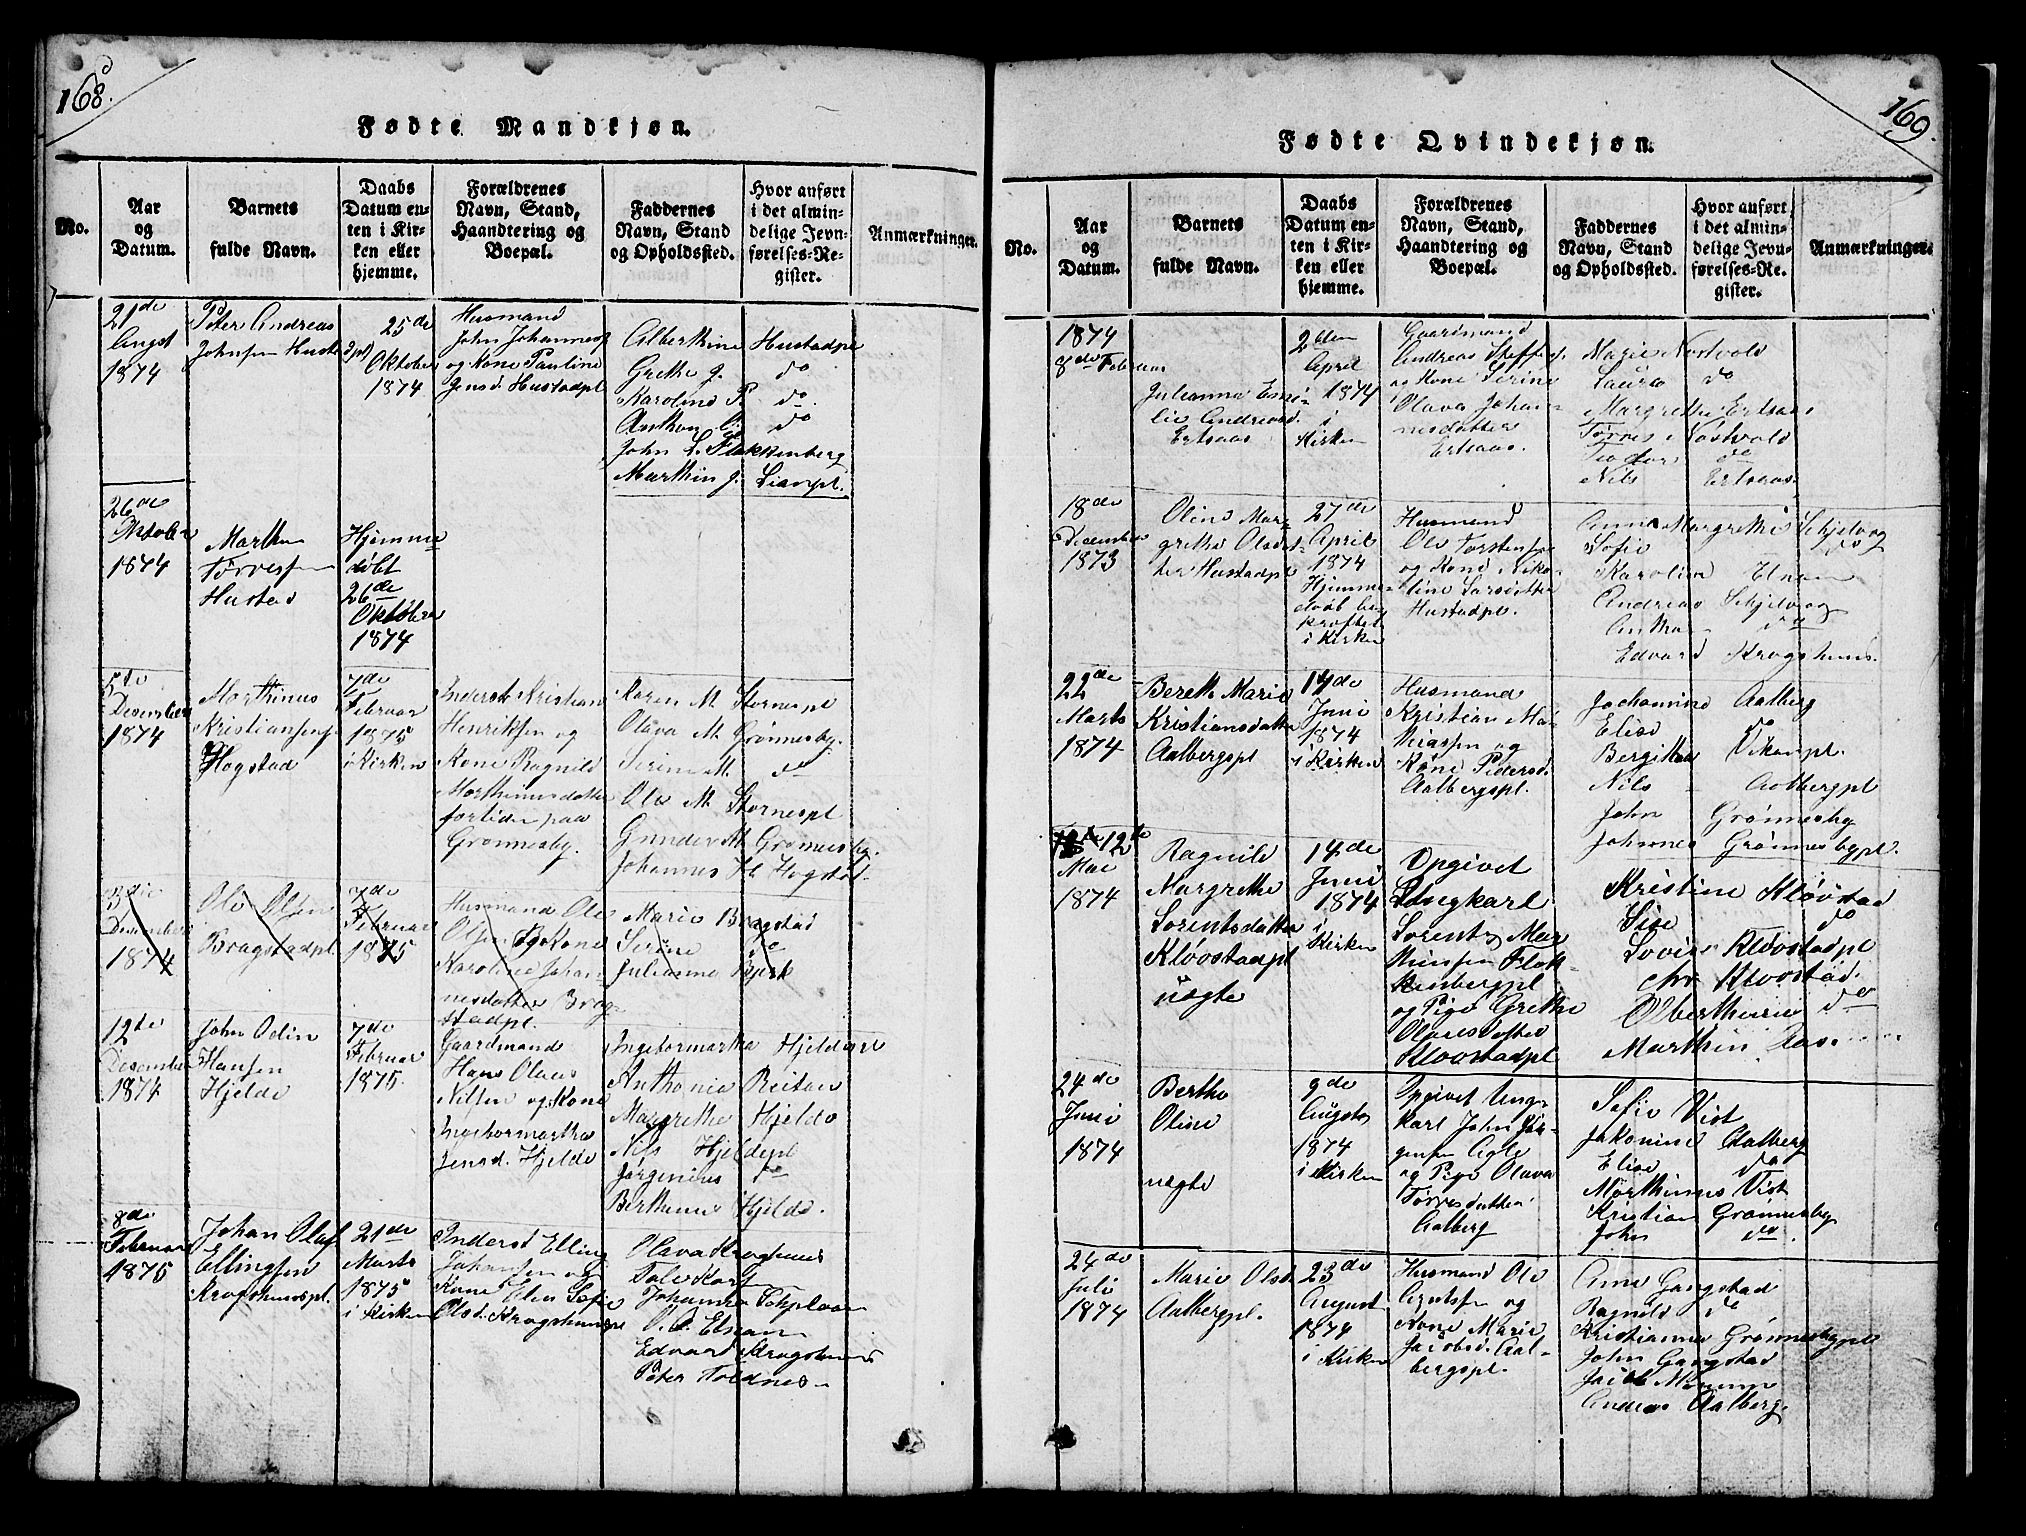 168.
Fødte Mandkjøn.
No.
Aar
og
Datum.
Barnets
fulde Navn.
Daabs
Datum en-
ten i Kir-
ken eller
hjemme.
Forældrenes
Navn, Stand,
Haandtering og
Boepæl.
Faddernes
Navn, Stand
og Opholdssted.
Hvor anført
i det almin-
delige Jevn-
førelses-Re-
gister.
Anmærkninger.
21de
August
1874
Peter Andreas
Johnsen Hustadpl
25de
Oktober
1874
Husmand
John Johannes
og Kone Pauline
Jensd. Hustadpl
Alberthine Hustadpl
Grethe J. do
Karoline P. do
Anthon do
John L. Flekkenberg
Marthin J. Lianpl.
26de
Oktober
1874
Marthin
Torresen
Hustad
Hjemme
døbt
26de
Oktober
1874
5te
Desember
1874
Morthinus
Kristiansen
Hogstad
7de
Februar
1875
i Kirken
Inderst Kristian
Henriksen og
Kone Ragnild
Morthinusdatter
fortiden paa
Grønnesby.
Karen M. Stornespl
Olava M. Grønnesby.
Serine M. do
Ole M. Stornespl
Gunder M. Grønnesby.
Johannes H. Hogstad.
3die
Desember
1874
Ole Olsen
Bragstadpl.
7de
Februar
1875
Husmand Ole
Olsen og Kone
Karoline Johan
nesdatter Brag
stadpl.
Marie Bragstad
Serine do
Julianna Bjerk
12te
Desember
1874
John Odin
Hansen
Hjelde
7de
Februar
1875.
Gaardmand
Hans Olaus
Nilsen og Kone
Ingebormartha
Jensd. Hjelde
Ingebormartha Hjelde
Anthonia Reitan
Margrethe Hjelde
Nils Hjeldepl
Jørginius do
Berthinus Hjelde.
8de
Februar
1875
Johan Olaf
Ellingsen
Kragshuuspl.
21de
Marts
1875
i Kirken
Inderst Elling
Johansen og
Kone Elen Sofie
Olsd. Kragshuuspl
Olava Kragshuus
Johanna
O. O. Elnan
Edvard Kragshuus
Peter Foldnes
169.
Fødte Qvindekjøn.
No.
Aar
og
Datum.
Barnets
fulde Navn.
Daabs
Datum en-
ten i Kir-
ken eller
hjemme.
Forældrenes
Navn, Stand,
Haandtering og
Boepæl.
Faddernes
Navn, Stand
og Opholdssted.
Hvor anført
i det almin-
delige Jevn-
førelses-Re-
gister.
Anmærkninger.
1874
8de Februar
Julianna Emi-
lie Andreasd.
Ertsaas
26den
April
1874
i
Kirken
Gaardmand
Andreas Steffens.
og Kone Serine
Olava Johan-
nesdatter
Ertsaas.
Marie Nøstvold
Laura do
Margrethe Ertsaas
Torres Nøstvold
Teodor do
Nils Ertsaas.
18de
December
1873
Oline Mar-
grethe Olsdat-
ter Hustadpl
27de
April
1874
Hjemme-
daab be-
kræftet
i Kirken
Husmand
Ole Torstensen
og Kone Niko-
line Larsdatter
Hustadpl.
Anna Margrethe Skjelvag
Sofie do
Karoline Elnan
Andreas Skjelvag
Anthon do
Edvard Kragshuus.
22de
Marts
1874
Bereth Marie
Kristiansdatter
Aalbergspl
14de
Juni
1874
i Kirken
Husmand
Kristian Ma-
thiassen og
Kone Pedersd.
Aalbergspl.
Jochannine Aalberg
Elise do
Bergitha Vikanpl.
Nils Aalbergpl
John Grønnesby
Johannes Grønnesbypl.
12te
Mai
1874
Ragnild
Margrethe
Sorentsdatter
Kløvstadpl
uægte
14de
Juni
1874
i
Kirken
Opgivet
Ungkarl
Sorents Mar
thinsen Flek-
kenbergpl
og Pige Grethe
Olausdatter
Kløvstadpl
Kristine Kløvstad
Sise do
Lovise Kløvstadpl
Chr. Kløvstad.
Olberthinus do
Marthin Aas
24de
Juni
1874
Bertha
Oline
uægte
9de
August
1874
i Kirken
Opgivet Ung-
karl John Jør-
gensen Agle
og Pige Olava
Torresdatter
Aalberg
Sofie Vist
Jakonine Aalberg
Elise do
Morthinus Vist
Kristian Grønnesby
John do.
24de
Juli
1874
Marie Olsd.
Aalbergpl.
23de
August
1874
i Kirken
Husmand Ole
Arntsen og
Kone Marie
Jacobsd. Aal-
bergspl.
Ane Gangstad
Ragnild do
Kristianna Grønnesbypl
John Gangstad
Jacob
Andreas Aalberg.